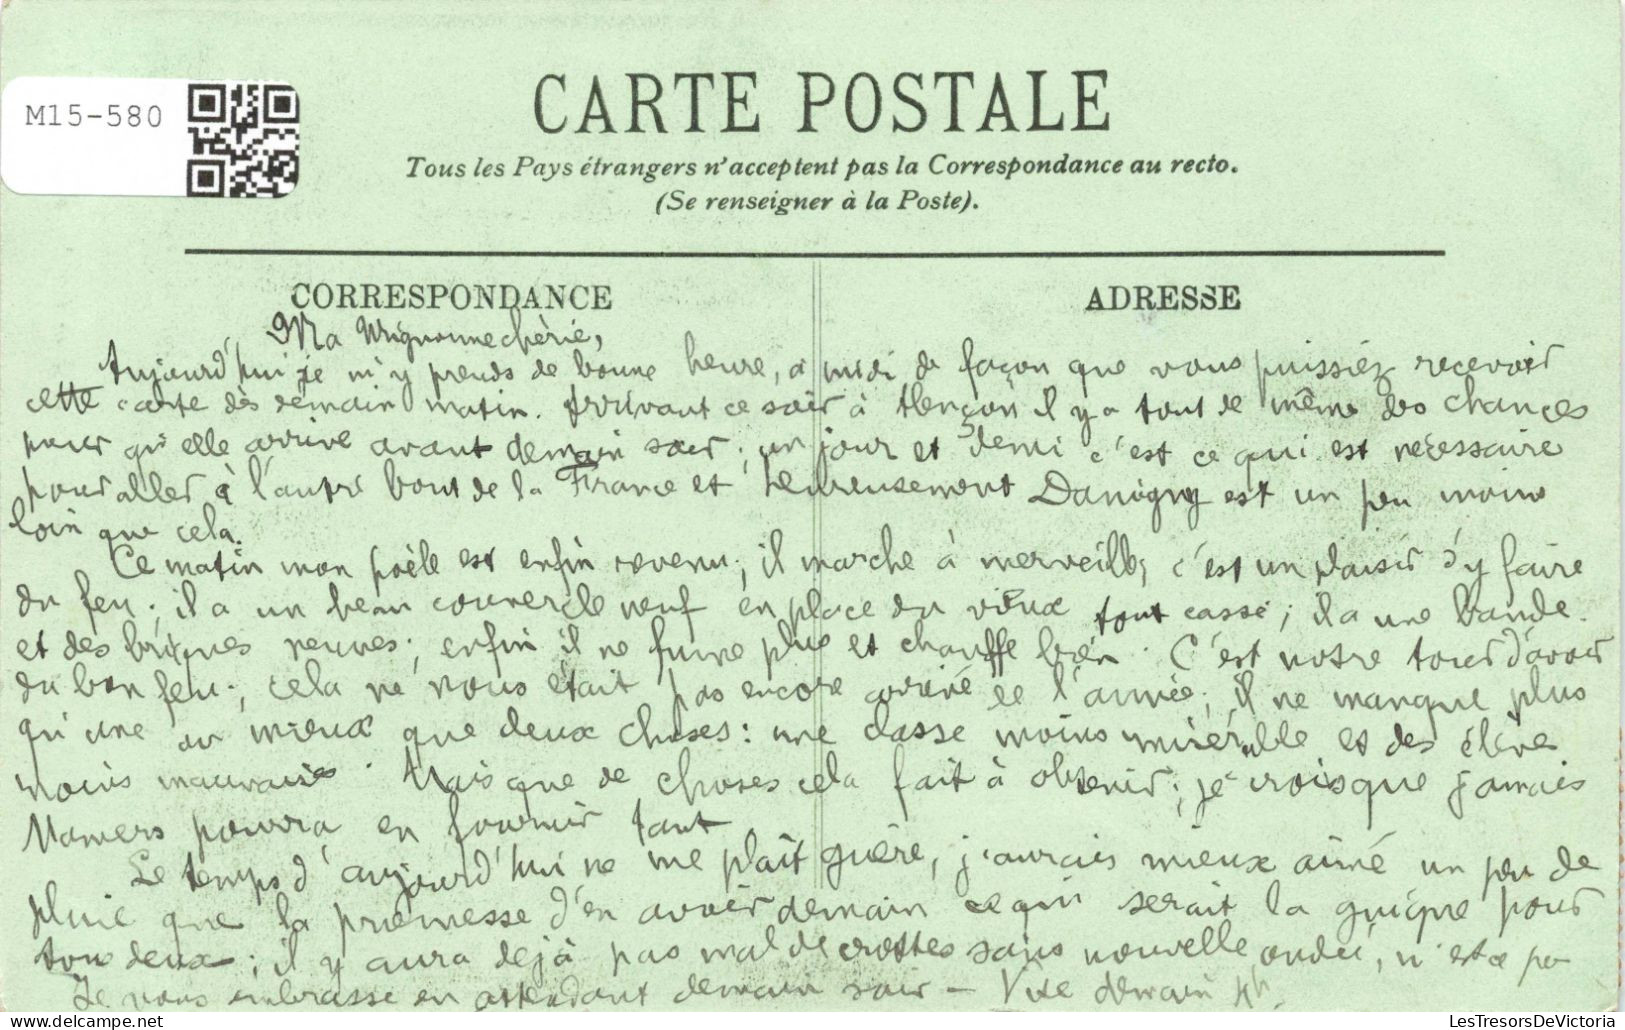 M15-580
CARTE POSTALE
Tous les Pays étrangers n'acceptent pas la Correspondance au recto.
(Se renseigner à la Poste).
CORRESPONDANCE
ADRESSE
Ma Mignonne chérie,
Aujourd'hui je m'y prends de bonne heure, à midi de façon que vous puissiez recevoir
cette carte dès demain matin. Arrivant ce soir à Alençon il y a tout de même des chances
pour qu'elle arrive avant demain soir ; un jour et demi c'est ce qui est nécessaire
pour aller à l'autre bout de la France et heureusement Damigny est un peu moins
loin que cela.
Ce matin mon poële est enfin revenu ; il marche à merveille, c'est un plaisir d'y faire
du feu ; il a un beau couvercle neuf en place du vieux tout cassé ; il a une bande
et des briques neuves ; enfin il ne fume plus et chauffe bien. C'est notre tour d'avoir
du bon feu ; cela ne nous était pas encore arrivé de l'année ; il ne manque plus
qu'une ou mieux que deux choses : une classe moins misérable et des élèves
moins mauvais. Mais que de choses cela fait à obtenir ; je crois que jamais
Mamers pourra en fournir tant
Le temps d'aujourd'hui ne me plaît guère, j'aurais mieux aimé un peu de
pluie que la promesse d'en avoir demain ce qui serait la guigne pour
tous deux ; il y aura dejà pas mal de crottes sans nouvelle ondée, n'est ce pas
Je vous embrasse en attendant demain soir – Vive demain 4h.
LesTresorsDeVictoria